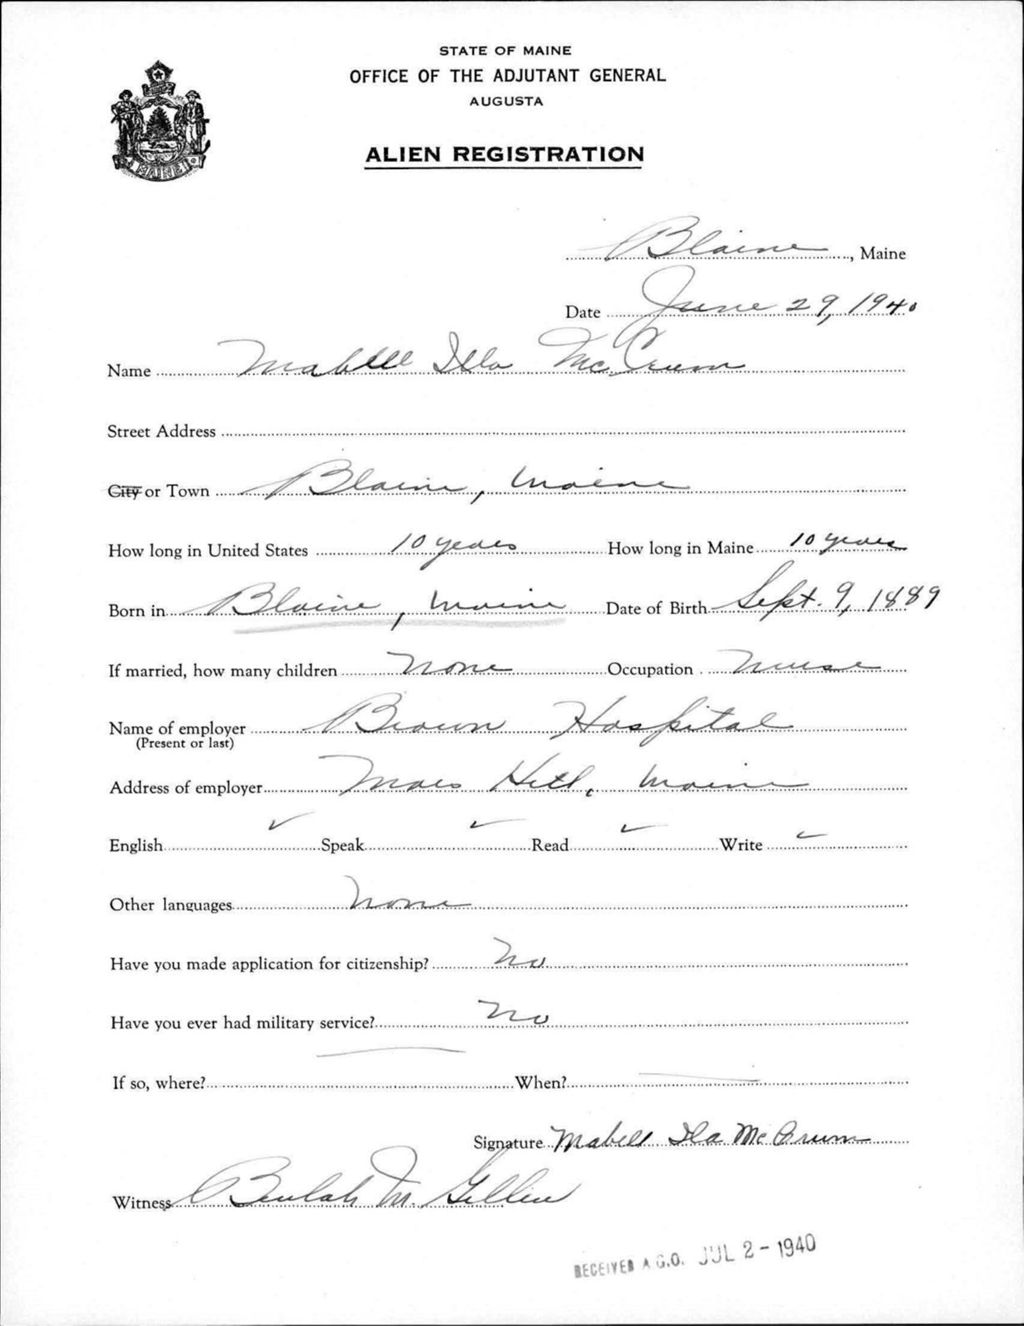 STATE OF MAINE
OFFICE OF THE ADJUTANT GENERAL
AUGUSTA
ALIEN REGISTRATION
MAINE
Blaine, Maine
Date June 29, 1940
Name Mabell Ila McCrum
Street Address
City or Town Blaine, Maine
How long in United States 10 years How long in Maine 10 years
Born in Blaine, Maine Date of Birth Sept. 9, 1889
If married, how many children None Occupation Nurse
Name of employer Brown Hospital
(Present or last)
Address of employer Mars Hill, Maine
English ✓ Speak ✓ Read ✓ Write ✓
Other languages None
Have you made application for citizenship? No
Have you ever had military service? No
If so, where? — When? —
Signature Mabell Ila McCrum
Witness Beulah M. Gillin
RECEIVED A.G.O. JUL 2 - 1940